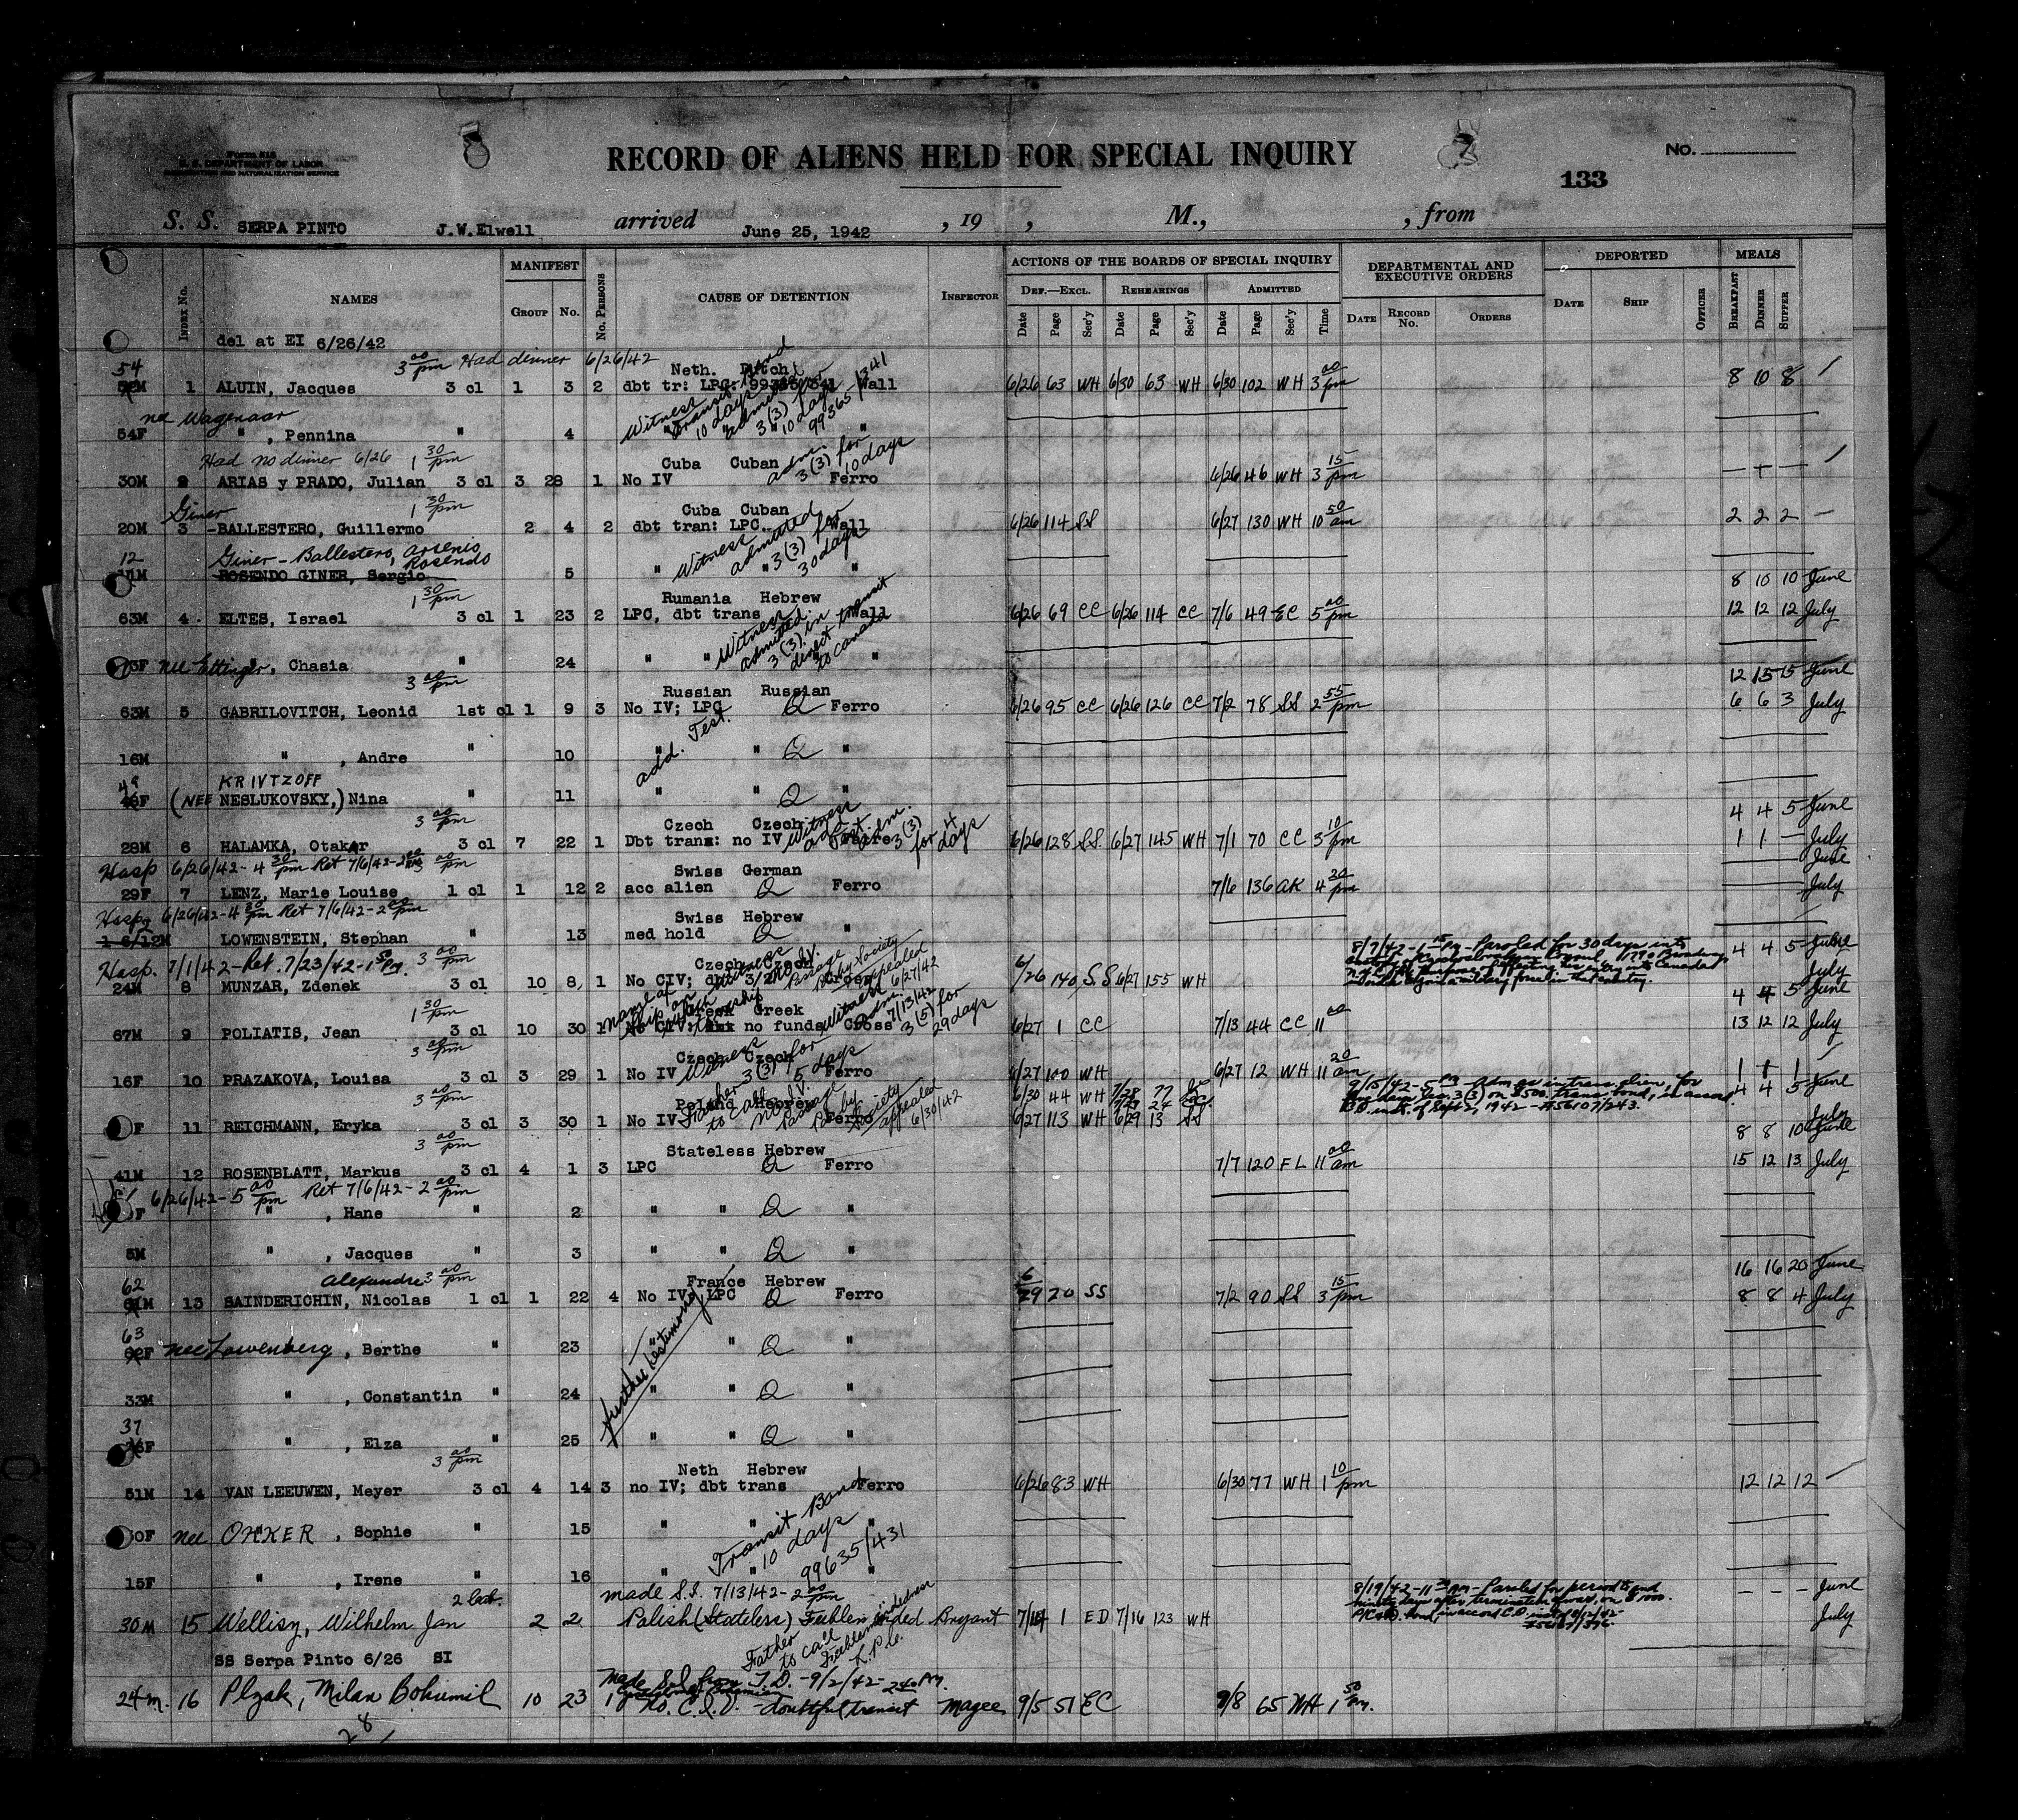 Form 518
U. S. DEPARTMENT OF LABOR
IMMIGRATION AND NATURALIZATION SERVICE
RECORD OF ALIENS HELD FOR SPECIAL INQUIRY
No.
133
S. S. SERPA PINTO J.W.Elwell arrived June 25, 1942 , 19 , M., , from
INDEX No. NAMES MANIFEST GROUP No. No. PERSONS CAUSE OF DETENTION INSPECTOR
ACTIONS OF THE BOARDS OF SPECIAL INQUIRY
DEF.—EXCL. REHEARINGS ADMITTED
Date Page Sec'y Date Page Sec'y Date Page Sec'y Time
DEPARTMENTAL AND EXECUTIVE ORDERS
DATE RECORD No. ORDERS
DEPORTED
DATE SHIP OFFICER
MEALS
BREAKFAST DINNER SUPPER
del at EI 6/26/42
3 00 pm Had dinner 6/26/42 Neth. Dutch
54
1 ALUIN, Jacques 3 cl 1 3 2 dbt tr: LPC: Wall 6/26 63 WH 6/30 63 WH 6/30 102 WH 3 00 pm 8 10 8
Witness Transit Bond 10 days admitted 3(3) for 10 days 99365/341
nee Wagenaar
54F " , Pennina " 4 " " "
Had no dinner 6/26 1 30 pm Cuba Cuban adm. 3(3) for 10 days
30M 2 ARIAS y PRADO, Julian 3 cl 3 28 1 No IV Ferro 6/26 46 WH 3 15 pm — — —
Giner 1 30 pm Cuba Cuban
20M 3 -BALLESTERO, Guillermo 2 4 2 dbt tran: LPC. Wall 6/26 114 SS 6/27 130 WH 10 50 am 2 2 2 —
Witness admitted 3(3) for 30 days
12 Giner-Ballestero, Arsenio Rosendo
ROSENDO GINER, Sergio 5 " " "
1 30 pm Rumania Hebrew 8 10 10 June
63M 4. ELTES, Israel 3 cl 1 23 2 LPC, dbt trans Wall 6/26 69 CC 6/26 114 CC 7/6 49 EC 5 00 pm 12 12 12 July
Witness admitted 3(3) in direct transit to Canada
nee Ettinger, Chasia " 24 " " "
3 00 pm Russian Russian 12 15 15 June
63M 5 GABRILOVITCH, Leonid 1st cl 1 9 3 No IV; LPC Q Ferro 6/26 95 CC 6/26 126 CC 7/2 78 SS 2 55 pm 6 6 3 July
add. Test.
16M " , Andre " 10 " " Q "
49 KRIVTZOFF
48F (NEE NESLUKOVSKY,) Nina " 11 " " Q "
3 00 pm Czech Czech 4 4 5 June
28M 6 HALAMKA, Otakar 3 cl 7 22 1 Dbt trans: no IV Ferro 6/26 128 SS. 6/27 145 WH 7/1 70 CC 3 10 pm 1 1 — July
Witness add. Test. adm. 3(3) for 4 days
Hosp 6/26/42-4 30 pm Ret 7/6/42-2 00 3 00 pm Swiss German June
29F 7 LENZ, Marie Louise 1 cl 1 12 2 acc alien Q Ferro 7/6 136 AK 4 20 pm July
Hosp 6/26/42-4 30 pm Ret 7/6/42-2 00 pm Swiss Hebrew "
1 6/12M LOWENSTEIN, Stephan " 13 med hold Q
Hosp. 7/1/42-Ret. 7/23/42-1 50 Pm. 3 00 pm Czech Czech 4 4 5 June
24M 8 MUNZAR, Zdenek 3 cl 10 8 1 No CIV; Green 6/26 140 SS 6/27 155 WH July
Witness Passage by Society appealed 6/27/42
8/7/42-1 15 Pm-Paroled for 30 days into
custody of Czechoslovakian Consul 1790 Broadway
N.Y.C. for purpose of effecting his entry into Canada
in order to join a military force in that country.
1 30 pm Greek Greek 4 4 5 June
67M 9 POLIATIS, Jean 3 cl 10 30 1 No CIV: no funds Cross 6/27 1 CC 7/13 44 CC 11 00 13 12 12 July
Witness adm. 7/13/42 3(5) for 29 days
3 00 pm Czech Czech
16F 10 PRAZAKOVA, Louisa 3 cl 3 29 1 No IV Ferro 6/27 100 WH 6/27 12 WH 11 20 am 1 1 1
Witness 3(3) for 5 days
3 00 pm Poland Hebrew 6/30 44 WH 7/28 77 4 4 5 June
F 11 REICHMANN, Eryka 3 cl 3 30 1 No IV Ferro 6/27 113 WH 6/29 13 SS July
Father to call no I.V. Passage by Society appealed 6/30/42
9/15/42-5 Pm Adm as in trans alien, for
3(3) on $500. trans. bond, in accord
C.O. inst. of Sept 2, 1942-#56107/243.
3 00 pm Stateless Hebrew 8 8 10 June
41M 12 ROSENBLATT, Markus 3 cl 4 1 3 LPC Q Ferro 7/7 120 FL 11 00 am 15 12 13 July
6/26/42-5 00 pm Ret 7/6/42-2 00 pm
F " , Hane " 2 " " Q "
5M " , Jacques " 3 " " Q "
62 Alexandre 3 00 pm France Hebrew 16 16 20 June
61M 13 SAINDERICHIN, Nicolas 1 cl 1 22 4 No IV; LPC Q Ferro 6/29 20 SS 7/2 90 SS 3 15 pm 8 8 4 July
further Testimony
63
62F nee Lowenberg, Berthe " 23 " Q "
33M " , Constantin " 24 " " Q "
37
36F " , Elza " 25 " " Q "
3 00 pm Neth Hebrew
51M 14 VAN LEEUWEN, Meyer 3 cl 4 14 3 no IV; dbt trans Ferro 6/26 83 WH 6/30 77 WH 1 10 pm 12 12 12
Transit Bond 10 days 99635/431
0F nee OHKER , Sophie " 15 " " "
15F " , Irene " 16 " " "
2 cab. made S.I. 7/13/42-2 00 pm — — — June
30M 15 Wellisz, Wilhelm Jan 2 2 Polish (Stateless) Feeble minded Bryant 7/14 1 ED 7/16 123 WH July
Father to call Feeblemindedness L.P.C.
8/19/42-11 30 Am-Paroled for period to end
ninety days after termination of war, on $1000.
SS Serpa Pinto 6/26 SI
made S.I. from T.D.-9/2/42- 2 40 Pm.
24m. 16 Plzak, Milan Bohumil 10 23 1 No. C.I.V. - doubtful transit Magee 9/5 51 EC 9/8 65 WH 1 50 Pm.
28